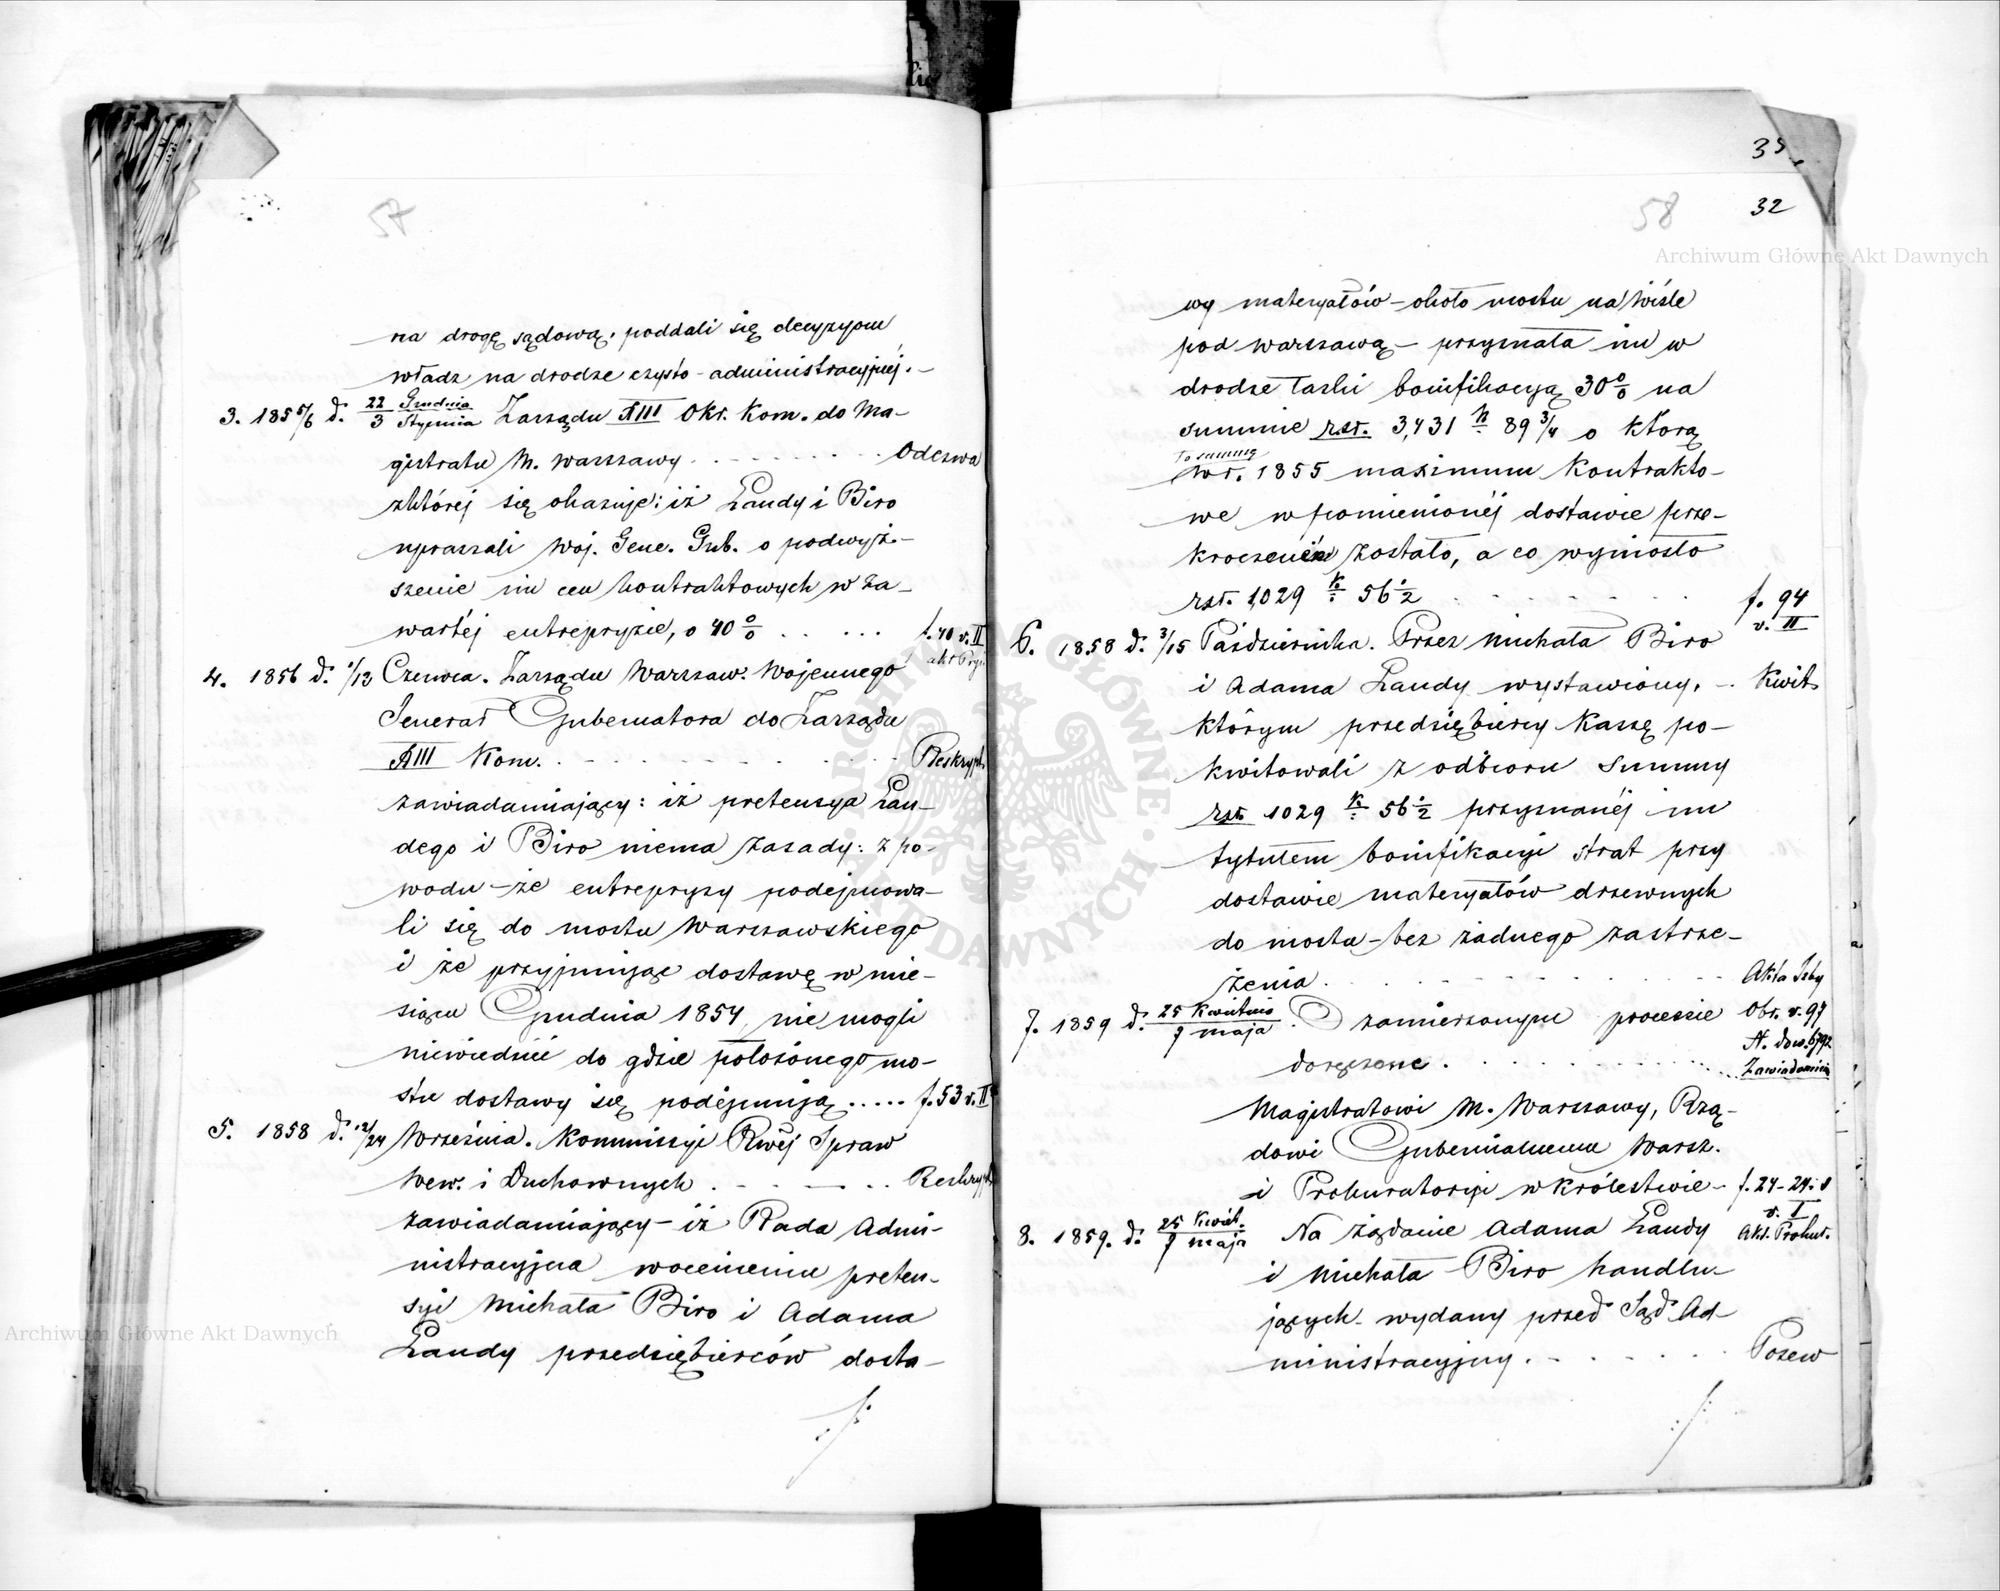 57
na drogę sądową, poddali się decyzyom
władz na drodze czysto-administracyjnéj.—
3. 1855/6 d. 22 Grudnia / 3 Stycznia Zarządu XIII Okr. Kom. do Ma-
gistratu M. Warszawy . . . . . . . Odezwa
z której się okazuje: iż Landy i Biro
upraszali Woj. Gene. Gub. o podwyż-
szenie im cen kontraktowych w za-
wartéj entrepryzie, o 40 % . . . . . f. 40 v. II
4. 1856 d. 1/13 Czerwca. Zarządu Warszaw. Wojennego
Generał Gubernatora do Zarządu
XIII Kom. . . . . . . . . Reskrypt
zawiadamiający: iż pretensya Lan-
dego i Biro niema zasady: z po-
wodu — że entrepryzy podejmowa-
li się do mostu Warszawskiego
i że przyjmując dostawę w mie-
siącu Grudniu 1854 nie mogli
niewiedzieć do gdzie położonego mo-
stu dostawy się podejmują ..... f. 53 v. II
5. 1858 d. 12/24 Września. Kommissyi Rwéj Spraw
Wew. i Duchownych . . . . . . Reskrypt
zawiadamiający — iż Rada Admi-
nistracyjna w ocenieniu preten-
syi Michała Biro i Adama
Landy przedsiębierców dosta-
32
58
wy materyałów — około mostu na Wiśle
pod Warszawą — przyznała im w
drodze łaski bonifikacyą 30 % na
summie rsr. 3,431 k. 89 3/4 o którą
To summą
w r. 1855 maximum kontrakto-
we w pomienionéj dostawie prze-
kroczeniem zostało, a co wyniosło
rsr. 1,029 k. 56 1/2 . . . . . . . f. 94 v. II
6. 1858 d. 3/15 Października. Przez Michała Biro
i Adama Landy wystawiony, — Kwit
którym przedsiębiercy Kassę po-
kwitowali z odbioru Summy
rsr. 1029 k. 56 1/2 przyznanéj im
tytułem bonifikacyi strat przy
dostawie materyałów drzewnych
do mostu — bez żadnego zastrze-
żenia . . . . . . . . Akta Izby
Obr. v. 97
N. dow. 6792
7. 1859 d. 25 Kwietnia / 7 maja. O zamierzonym processie
doręczone . . . . . . . . Zawiadomienia
Magistratowi M. Warszawy, Rzą-
dowi Gubernialnemu Warsz.
i Prokuratoryi w Królestwie — f. 24-24
v. I
Akt. Prokut.
8. 1859. d. 25 Kwiet. / 7 maja Na żądanie Adama Landy
i Michała Biro handlu-
jących — wydany przed Sąd Ad-
ministracyjny . . . . . . . Pozew
Archiwum Główne Akt Dawnych
Archiwum Główne Akt Dawnych
ARCHIWUM GŁÓWNE AKT DAWNYCH